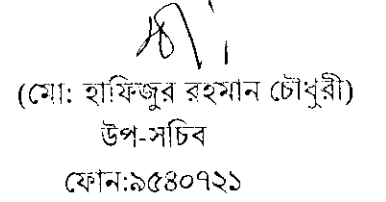 (মো: হাফিজুর রহমান চৌধুরী)
উপ-সচিব
ফোন:৯৫৪০৭২১